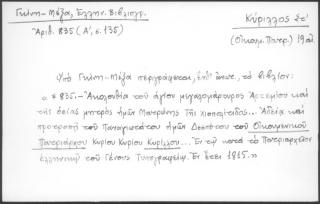 Γκίνη-Μέξα, Ἑλλην. Βιβλιογρ.
Ἀριθ. 835 (Α', σ. 135)
Κύριλλος Στ'
(Οἰκουμ. Πατρ.) 19ου
Ὑπὸ Γκίνη-Μέξα περιγράφεται, τὸ βιβλίον:
« * 835.- Ἀκολουθία τοῦ ἁγίου μεγαλομάρτυρος Ἀρτεμίου καὶ
τῆς ὁσίας μητρὸς ἡμῶν Ματρώνης τῆς χιοπολίτιδος... Ἀδείᾳ καὶ
προτροπῇ τοῦ Παναγιωτάτου ἡμῶν Δεσπότου τοῦ Οἰκουμενικοῦ
Πατριάρχου Κυρίου Κυρίου Κυρίλλου... Ἐν τῷ κατὰ τὸ Πατριαρχεῖον
ἑλληνικῷ τοῦ Γένους Τυπογραφείῳ. Ἐν ἔτει 1815.»